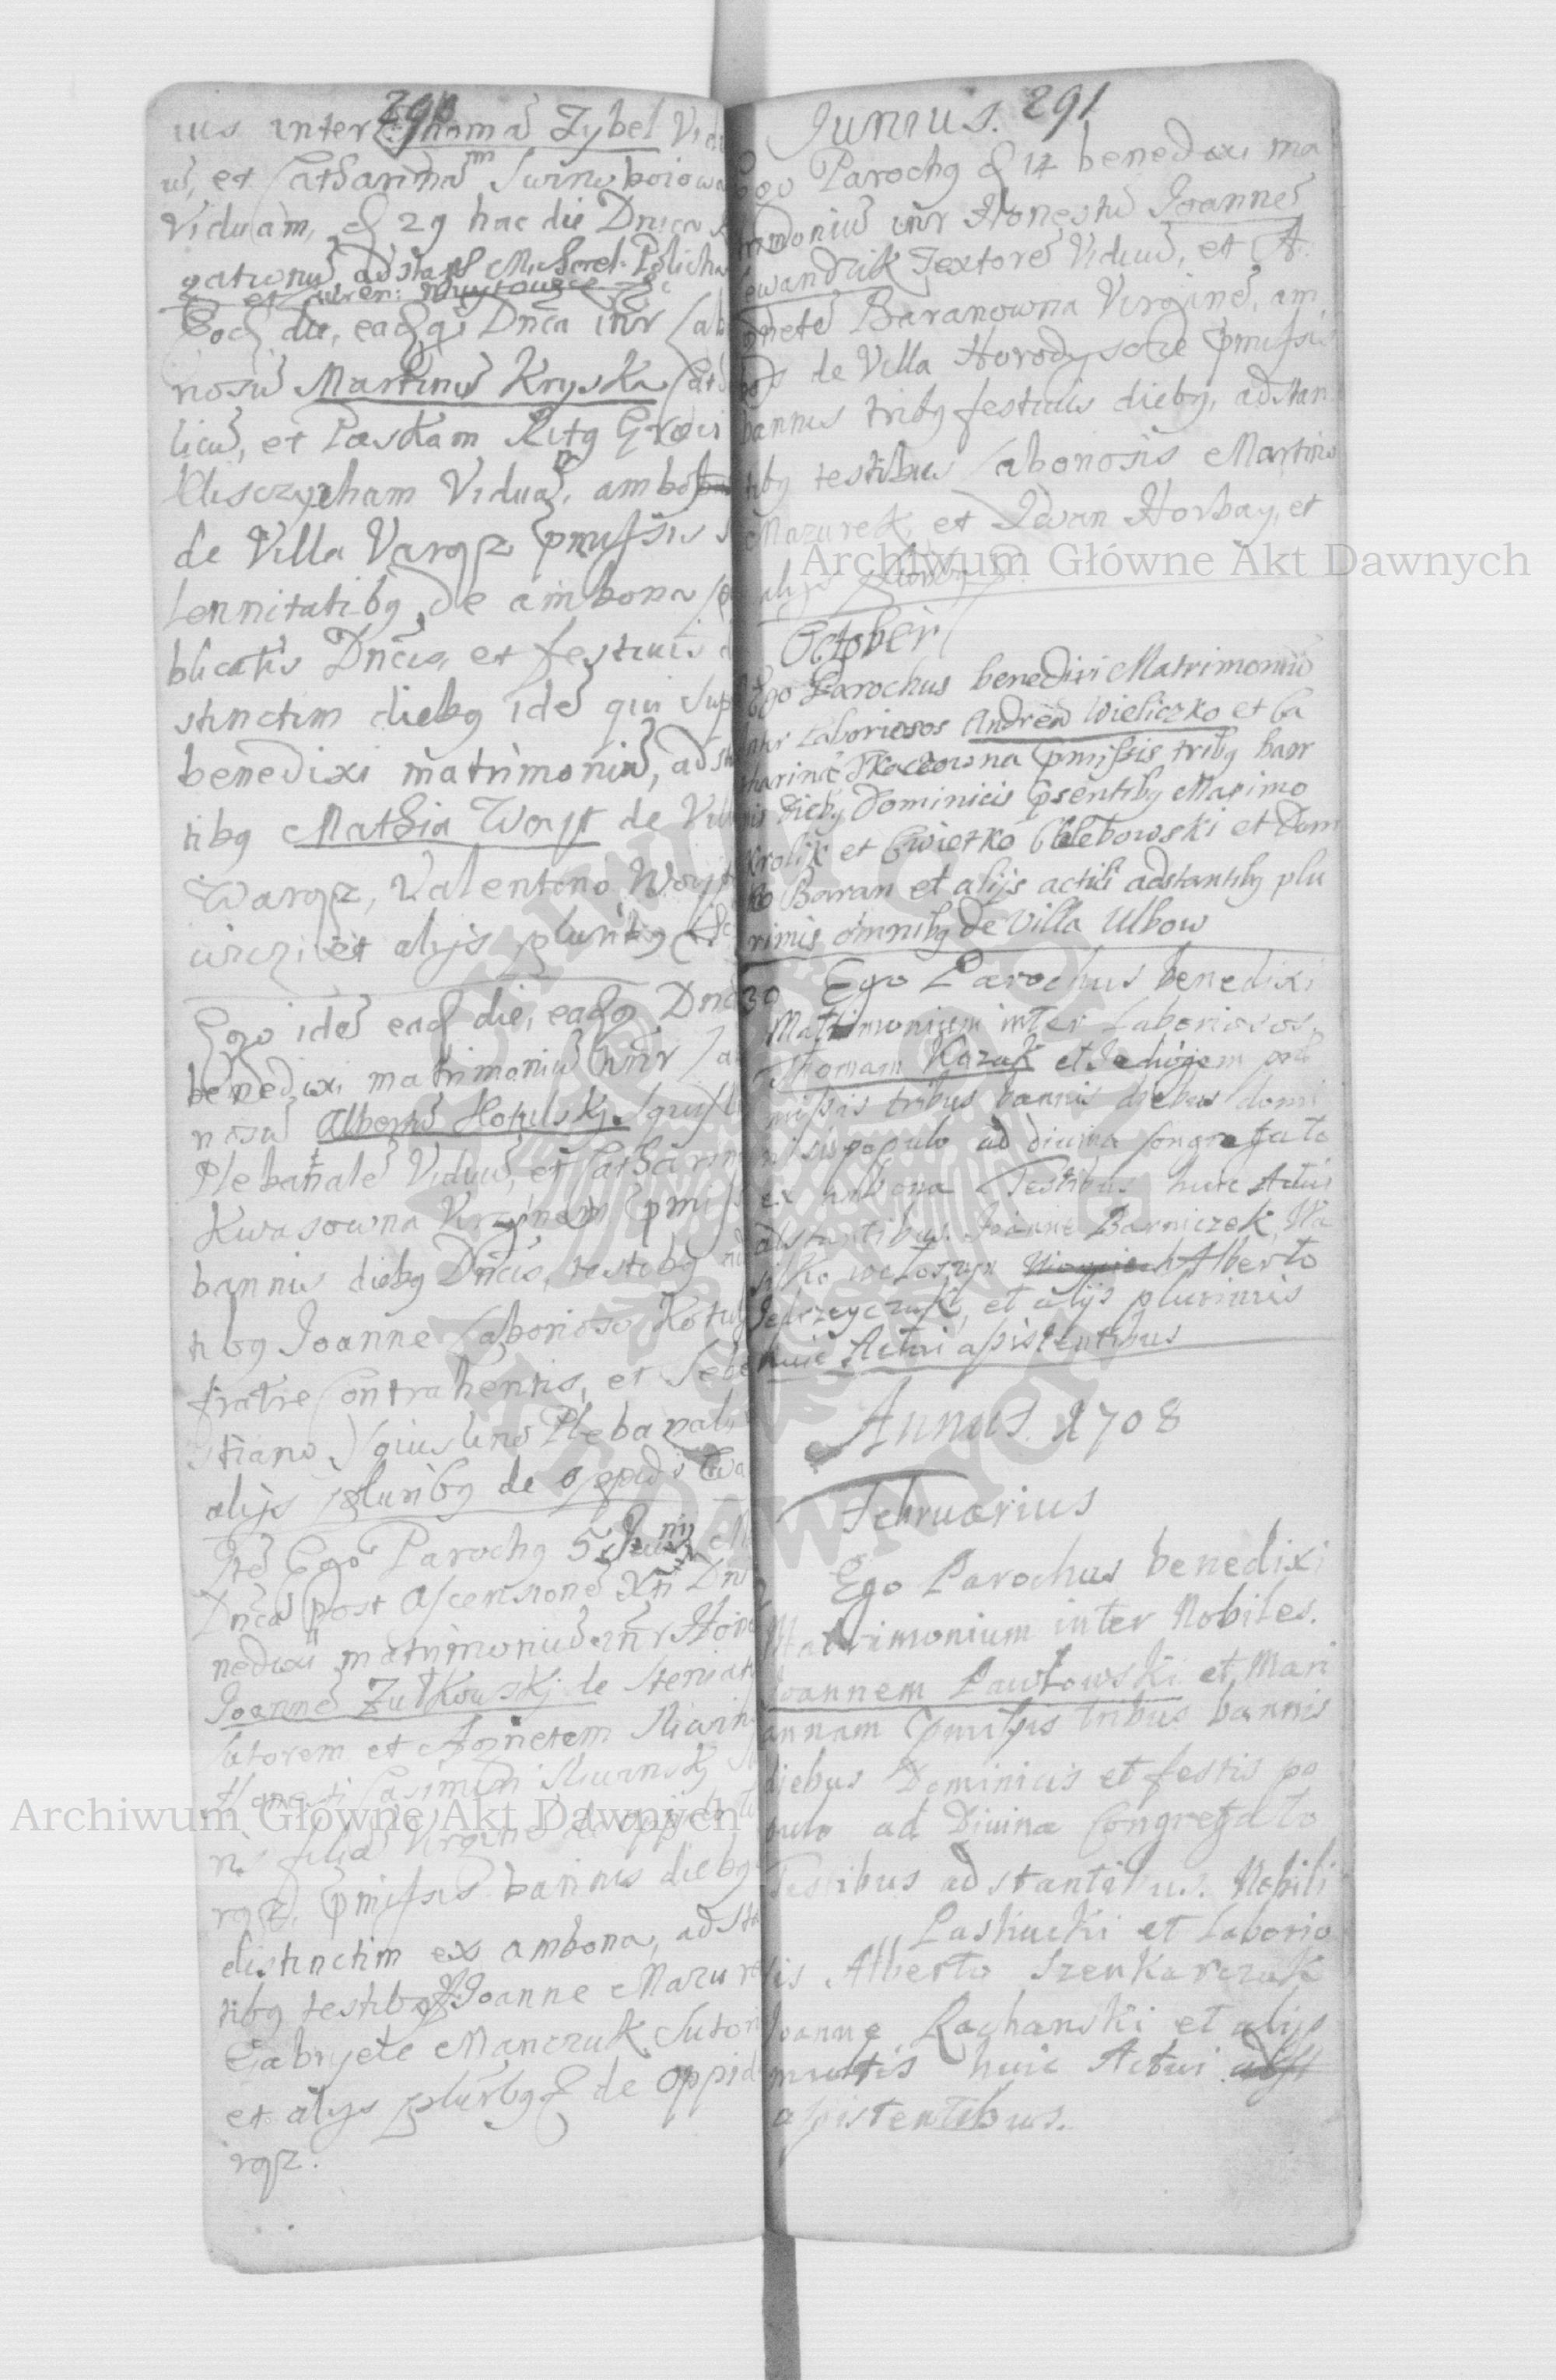 290
ius inter Thomã Zybel Vidu
ũ, et Catharinãm Swinoboiowa
Viduam, d 29 hac die Dnica
gationũ adstant Michael Policha
et Lauren:
Eod die, eadq Dnica inr Lab
riosũ Martinũ Kryska Cath
licũ, et Paskam Ritq Græci
Klisczycham Viduã, ambo
de Villa Varqz pmissis
lennitatibq de ambona
blicatis Dncis, et festiuis
stinctim diebq idẽ qui sup
benedixi matrimoniũ, adsta
tibq Mathia Woyt de Villa
Warqz, Valentono Woyt
et alijs pluribq
Ego idẽ ead die, eadq Dnca
benedixi matrimoniũ inr La
riosũ Albertũ Hotulskj
Plebanalẽ Viduũ, et Catharin
Kwasowna Virginem pmiss
bannis diebq Dncis, testibq ad
tibq Joanne Laborioso Kotul
fratre Contrahentis, et Seba
stiano Plebanali
alijs pluribq de oppido Wa
Itẽ Ego Parochq 5 Junij
Dnca post Ascensionẽ Xti Dni
nedixi matrimoniũ inr Hone
Joannẽ Zułkowskj de Steniat
sutorem et Agnetem
Honesti Casimiri
ris filiã Virginẽ de oppido
rqz, pmissis bannis diebq
distinctim ex ambona, adsta
tibq testibq Joanne Mazur
Gabryele Manczuk Sutori
et alijs pluribq de oppid
rqz.
Junius. 291
Ego Parochq d 14 benedixi ma
trimoniũ inr Honestũ Joannẽ
ewandzik Textorẽ Viduũ, et A:
gnetẽ Baranowna Virginẽ, am
bos de Villa Horodyscze pmissis
bannis tribq festiuis diebq, adstan
tibq testibus Laboriosis Martino
Mazurek, et Iwan Horbay, et
alijs pluribq
October
Ego Parochus benedixi Matrimoniũ
inter Laboriosos Andreã Wieliczko et Ca
tharinã Tkaczowna pmissis tribq ban
nis diebq Dominicis psentibq Maximo
Krolik et Cwietko Chlebowski et Dom
ko Baran et alijs actui adstantibq plu
rimis omnibq de Villa Ulbow
30 Ego Parochus benedixi
Matrimonium inter Laboriosos
Thomam Kozak et Jedwigem prae
missis tribus bannis diebus domi
nisis populo ad diuina Congregato
ex ambona Testibus huic Actui
adstantibus. Joanne Barniczek, Wa
silko Wołoszyn Alberto
Jedrzeyczuk, et alijs plurimis
huic Actui assistentibus
Annus. 1708
Februarius
Ego Parochus benedixi
Matrimonium inter Nobiles.
Joannem Pawłowski et Mari
annam pmissis tribus bannis
diebus Dominicis et festis po
pulo ad Diuina Congregato
Testibus adstantibus. Nobili
et Laborio
sis Alberto Szenkarczuk
Joanne Rachanski et alijs
multis huic Actui
assistentibus.
Archiwum Główne Akt Dawnych
Archiwum Główne Akt Dawnych
ARCHIWUM GŁÓWNE AKT DAWNYCH